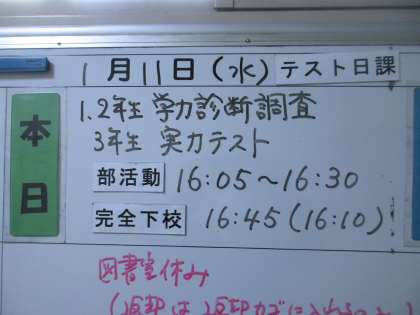 1月11日(水) テスト日課
本日
1.2年生 学力診断調査
3年生 実力テスト
部活動 16:05~16:30
完全下校 16:45(16:10)
図書室休み
(返却は返却カゴに入れる